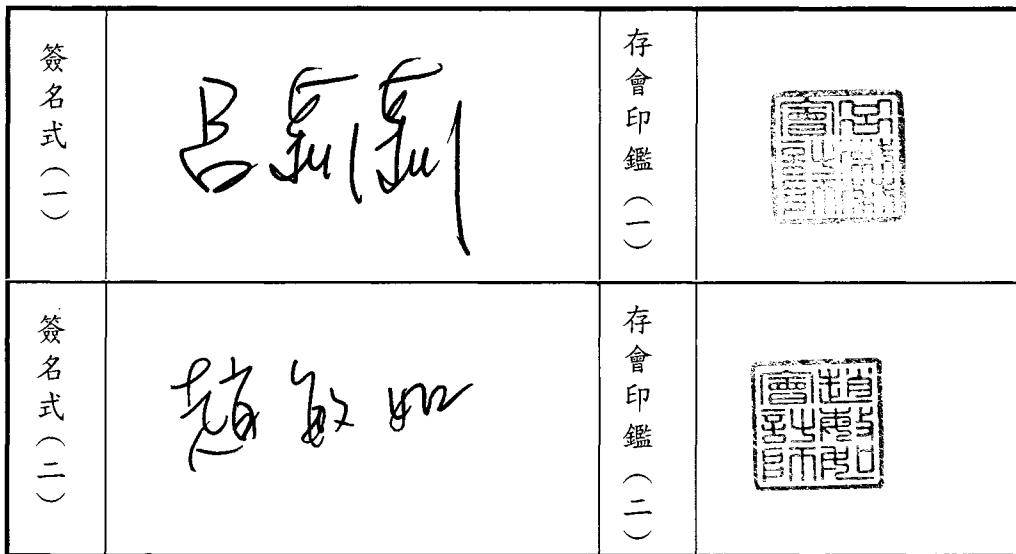 簽名式（一）
呂莉莉
存會印鑑（一）
簽名式（二）
趙敏如
存會印鑑（二）
趙敏如
會計師